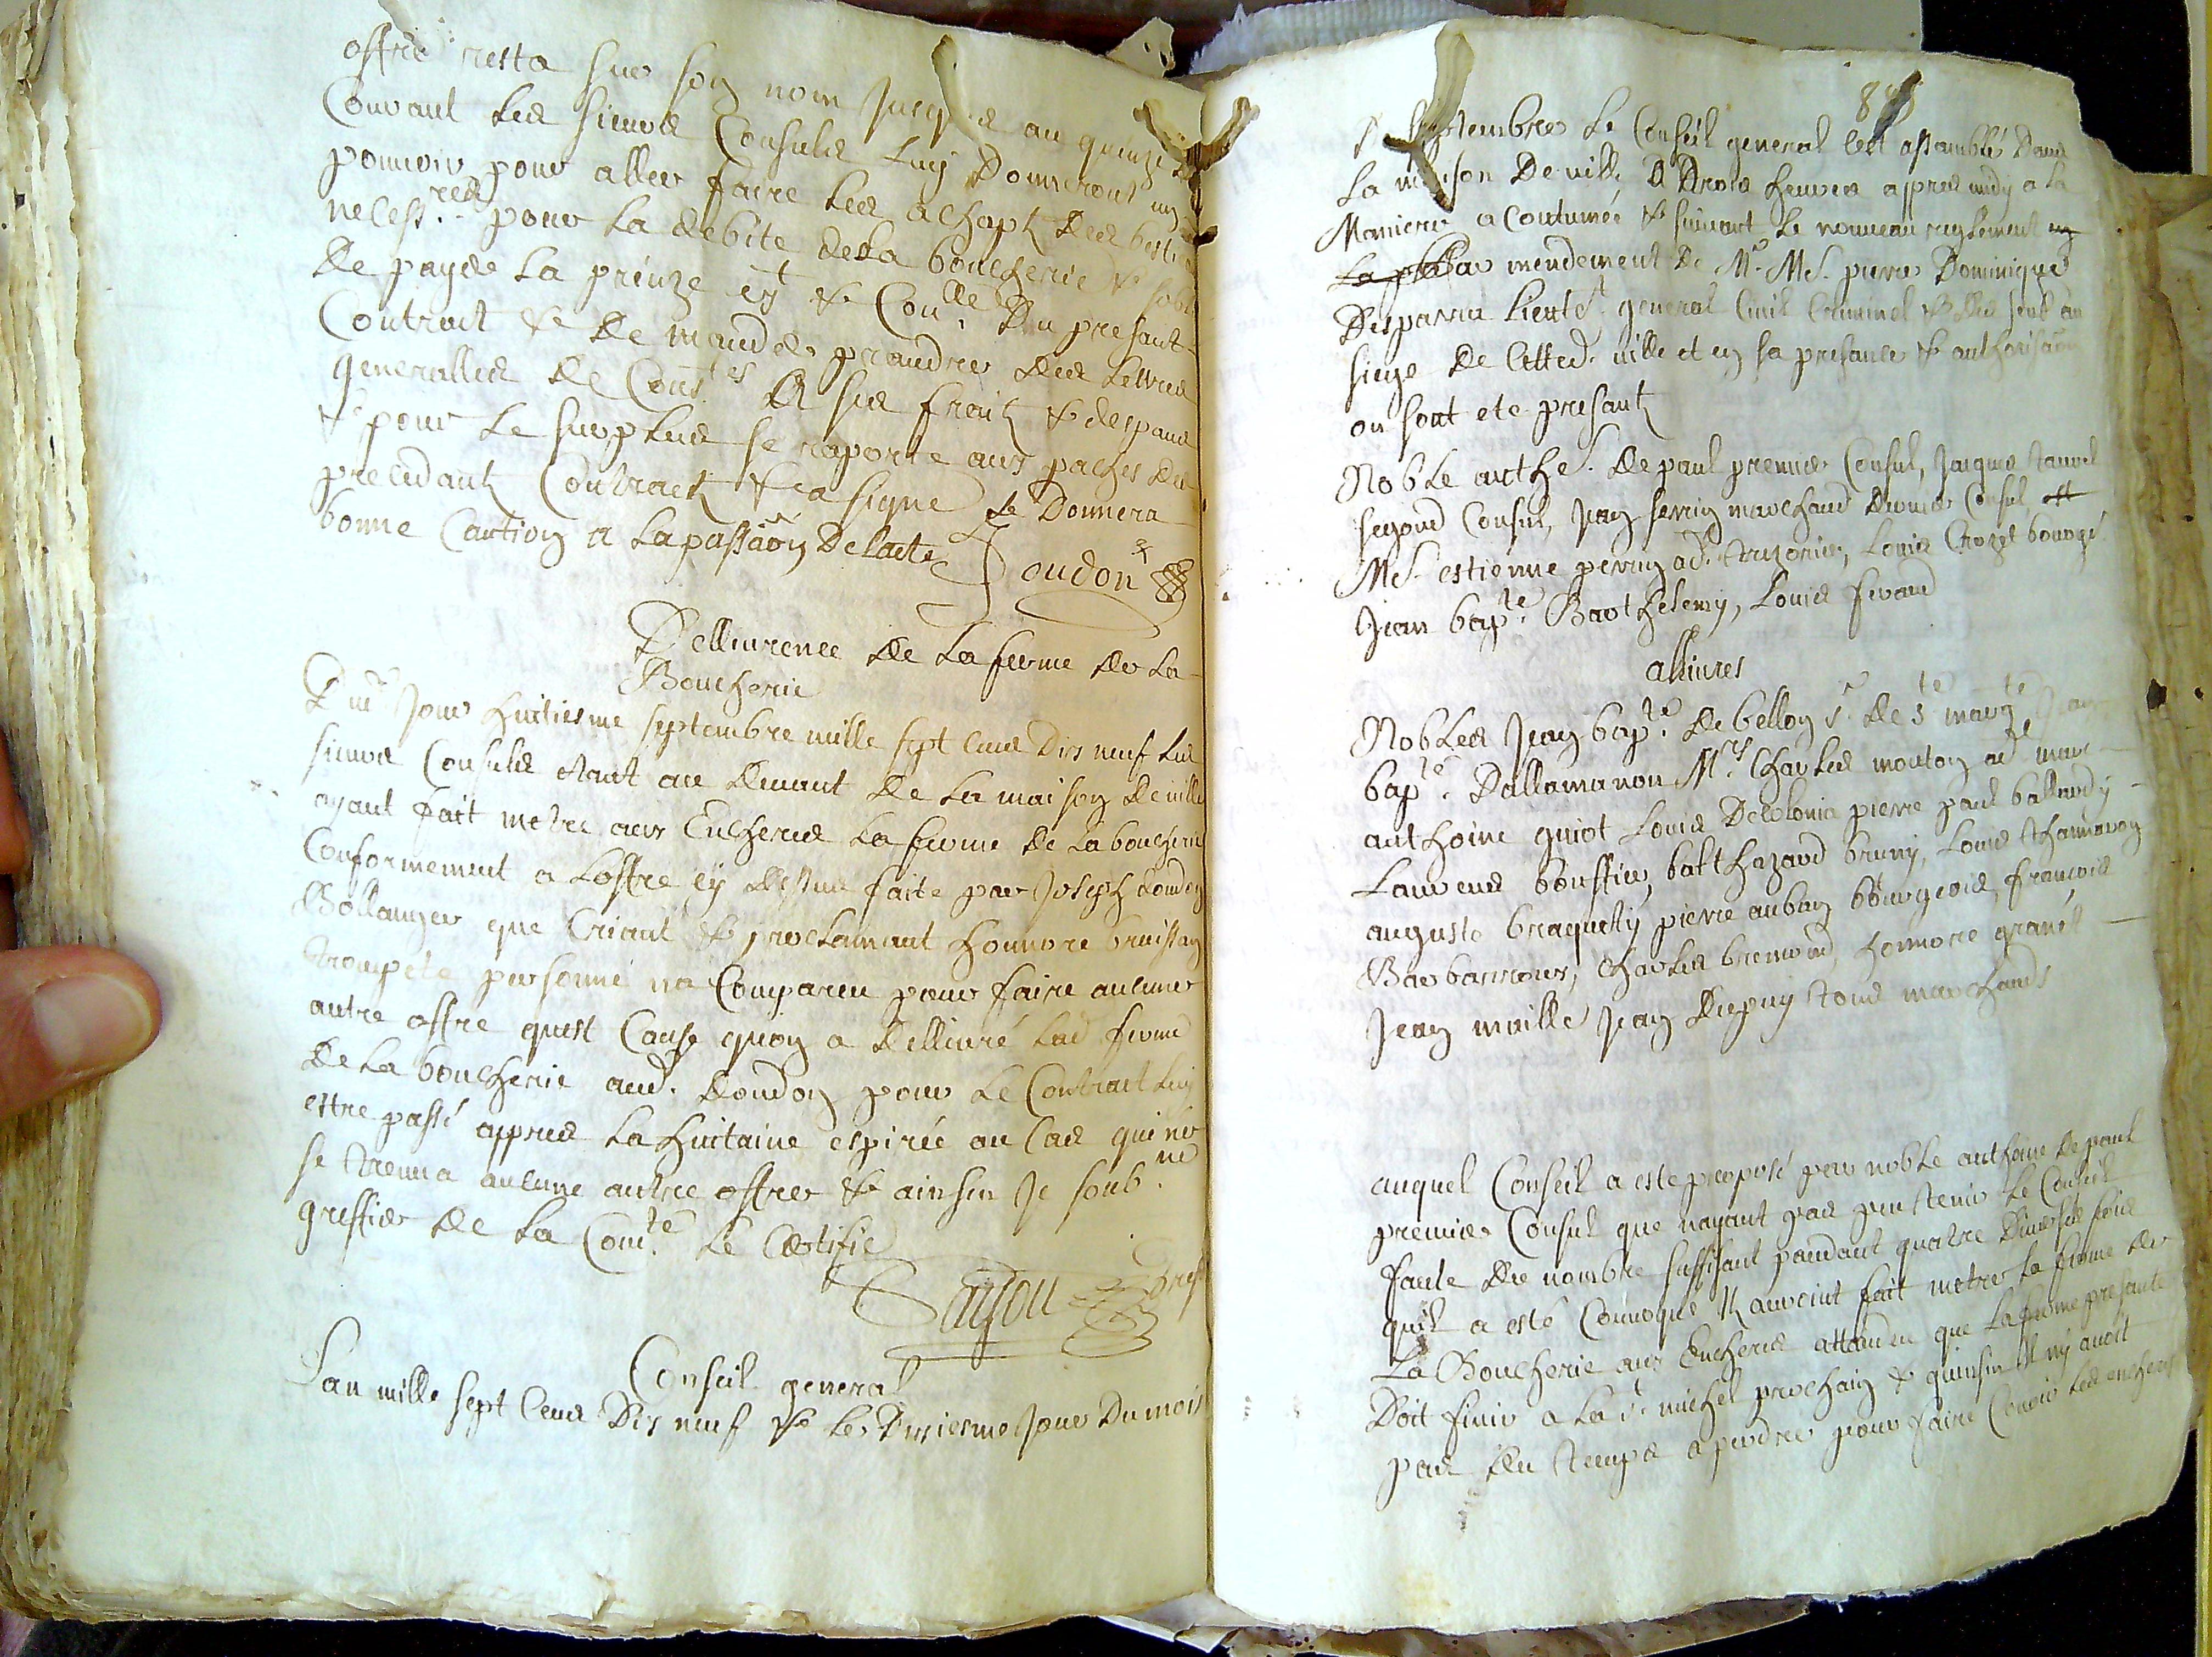 offre resta sur son nom jusques au quinze
Couvant les sieurs Consuls luy Donneront un
pouvoir pour aller faire les achapt des besti
necess.res pour la debite de la boucherie &
De payer la prinze et & Con.lle Du presant
Contract & De mander prandre des Lettres
generalles de Cons.tes A ses frait & despans
& pour le surplus se raporte aux paches des
precedants Contracts & a signe & Donnera
bonne Caution a la passaon De lacte Loudon
Dellivrence de la ferme de la
Boucherie
Du Jour huitiesme septembre mille sept cens Dix neuf les
sieurs Consuls etant au Devant de la maison de ville
ayant fait metre aux Encheres la ferme de la boucherie
Conformement a Loffre cy dessus faite par Joseph Loudon
Bollanger que Criant & proclamant honnore
trompete personne na Compareu pour faire aucune
autre offre quest Cause quon a Dellivré lad ferme
De la boucherie aud. Loudon pour le Contract luy
estre passé appres la huitaine espirée au Cas qui ne
se treuva aucune autre offre & ainsin Je soub.ne
greffier de la Com.te Le Certifie
Conseil general
Lan mille sept Cens Dix neuf & le Dixiesme Jour Du mois
septembre le Conseil general sest assamblé Dans
la maison De ville A trois heures appres midy a la
Maniere acoutumée & suivant le nouveau reglement
mendement De Mr. Me. pierre Dominique
Lieut.t general Civil Criminel & des seul au
siege De Cetted. ville et en sa presance & authorisaon
ou sont ete presants
Noble anthe. de paul premier Consul, Jacques tauvel
segond Consul, Jean marchand Dernier Consul
Me. estienne perrin ad. tresorier, Louis Crozet bourge.
Jean bap.te Barthelemy, Louis fevaud
allivres
Nobles Jean bap.te De bellon sr De Ste marg.te Jean
bap.te Dallamanon M.rs Charles mouton ad marc
anthoine guiot Louis Decolonia pierre paul ballardy
Laurens bouffier, balthazard bruny, Louis
auguste braquety pierre auban bourgeois, francois
Barbarroux, Charles bremond, honnore granet
Jean maille Jean Dupuy tous marchands
auquel Conseil a este proposé par noble anthoine de paul
premier Consul que nayant pas peu tenir le Conseil
faute de nombre suffisant pandant quatre Diverses fois
quil a esté Convoqué Ils auroint fait metre la ferme de
La Boucherie aux Encheres attandeu que la ferme presante
Doit finir a la St. michel prochain & quinsin il ny avoit
pas du temps a perdre pour faire Courir les encheres